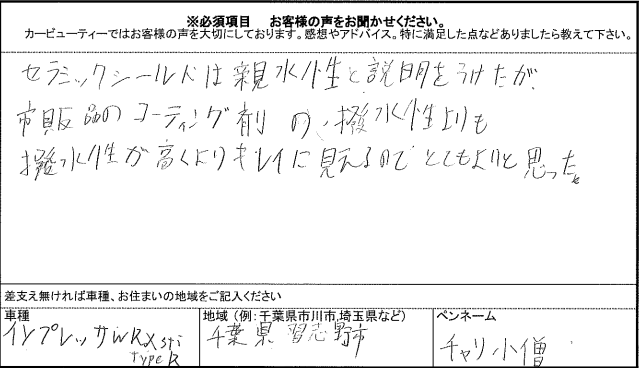 ※必須項目　お客様の声をお聞かせください。
カービューティーではお客様の声を大切にしております。感想やアドバイス。特に満足した点などありましたら教えて下さい。
セラミックシールドは親水性と説明をうけたが、
市販品のコーティング剤の、撥水性よりも
撥水性が高くよりキレイに見えるのでとてもよいと思った。
差支え無ければ車種、お住まいの地域をご記入ください
車種
地域（例：千葉県市川市,埼玉県など）
ペンネーム
インプレッサWRX sti
type R
千葉県習志野市
チャリ小僧